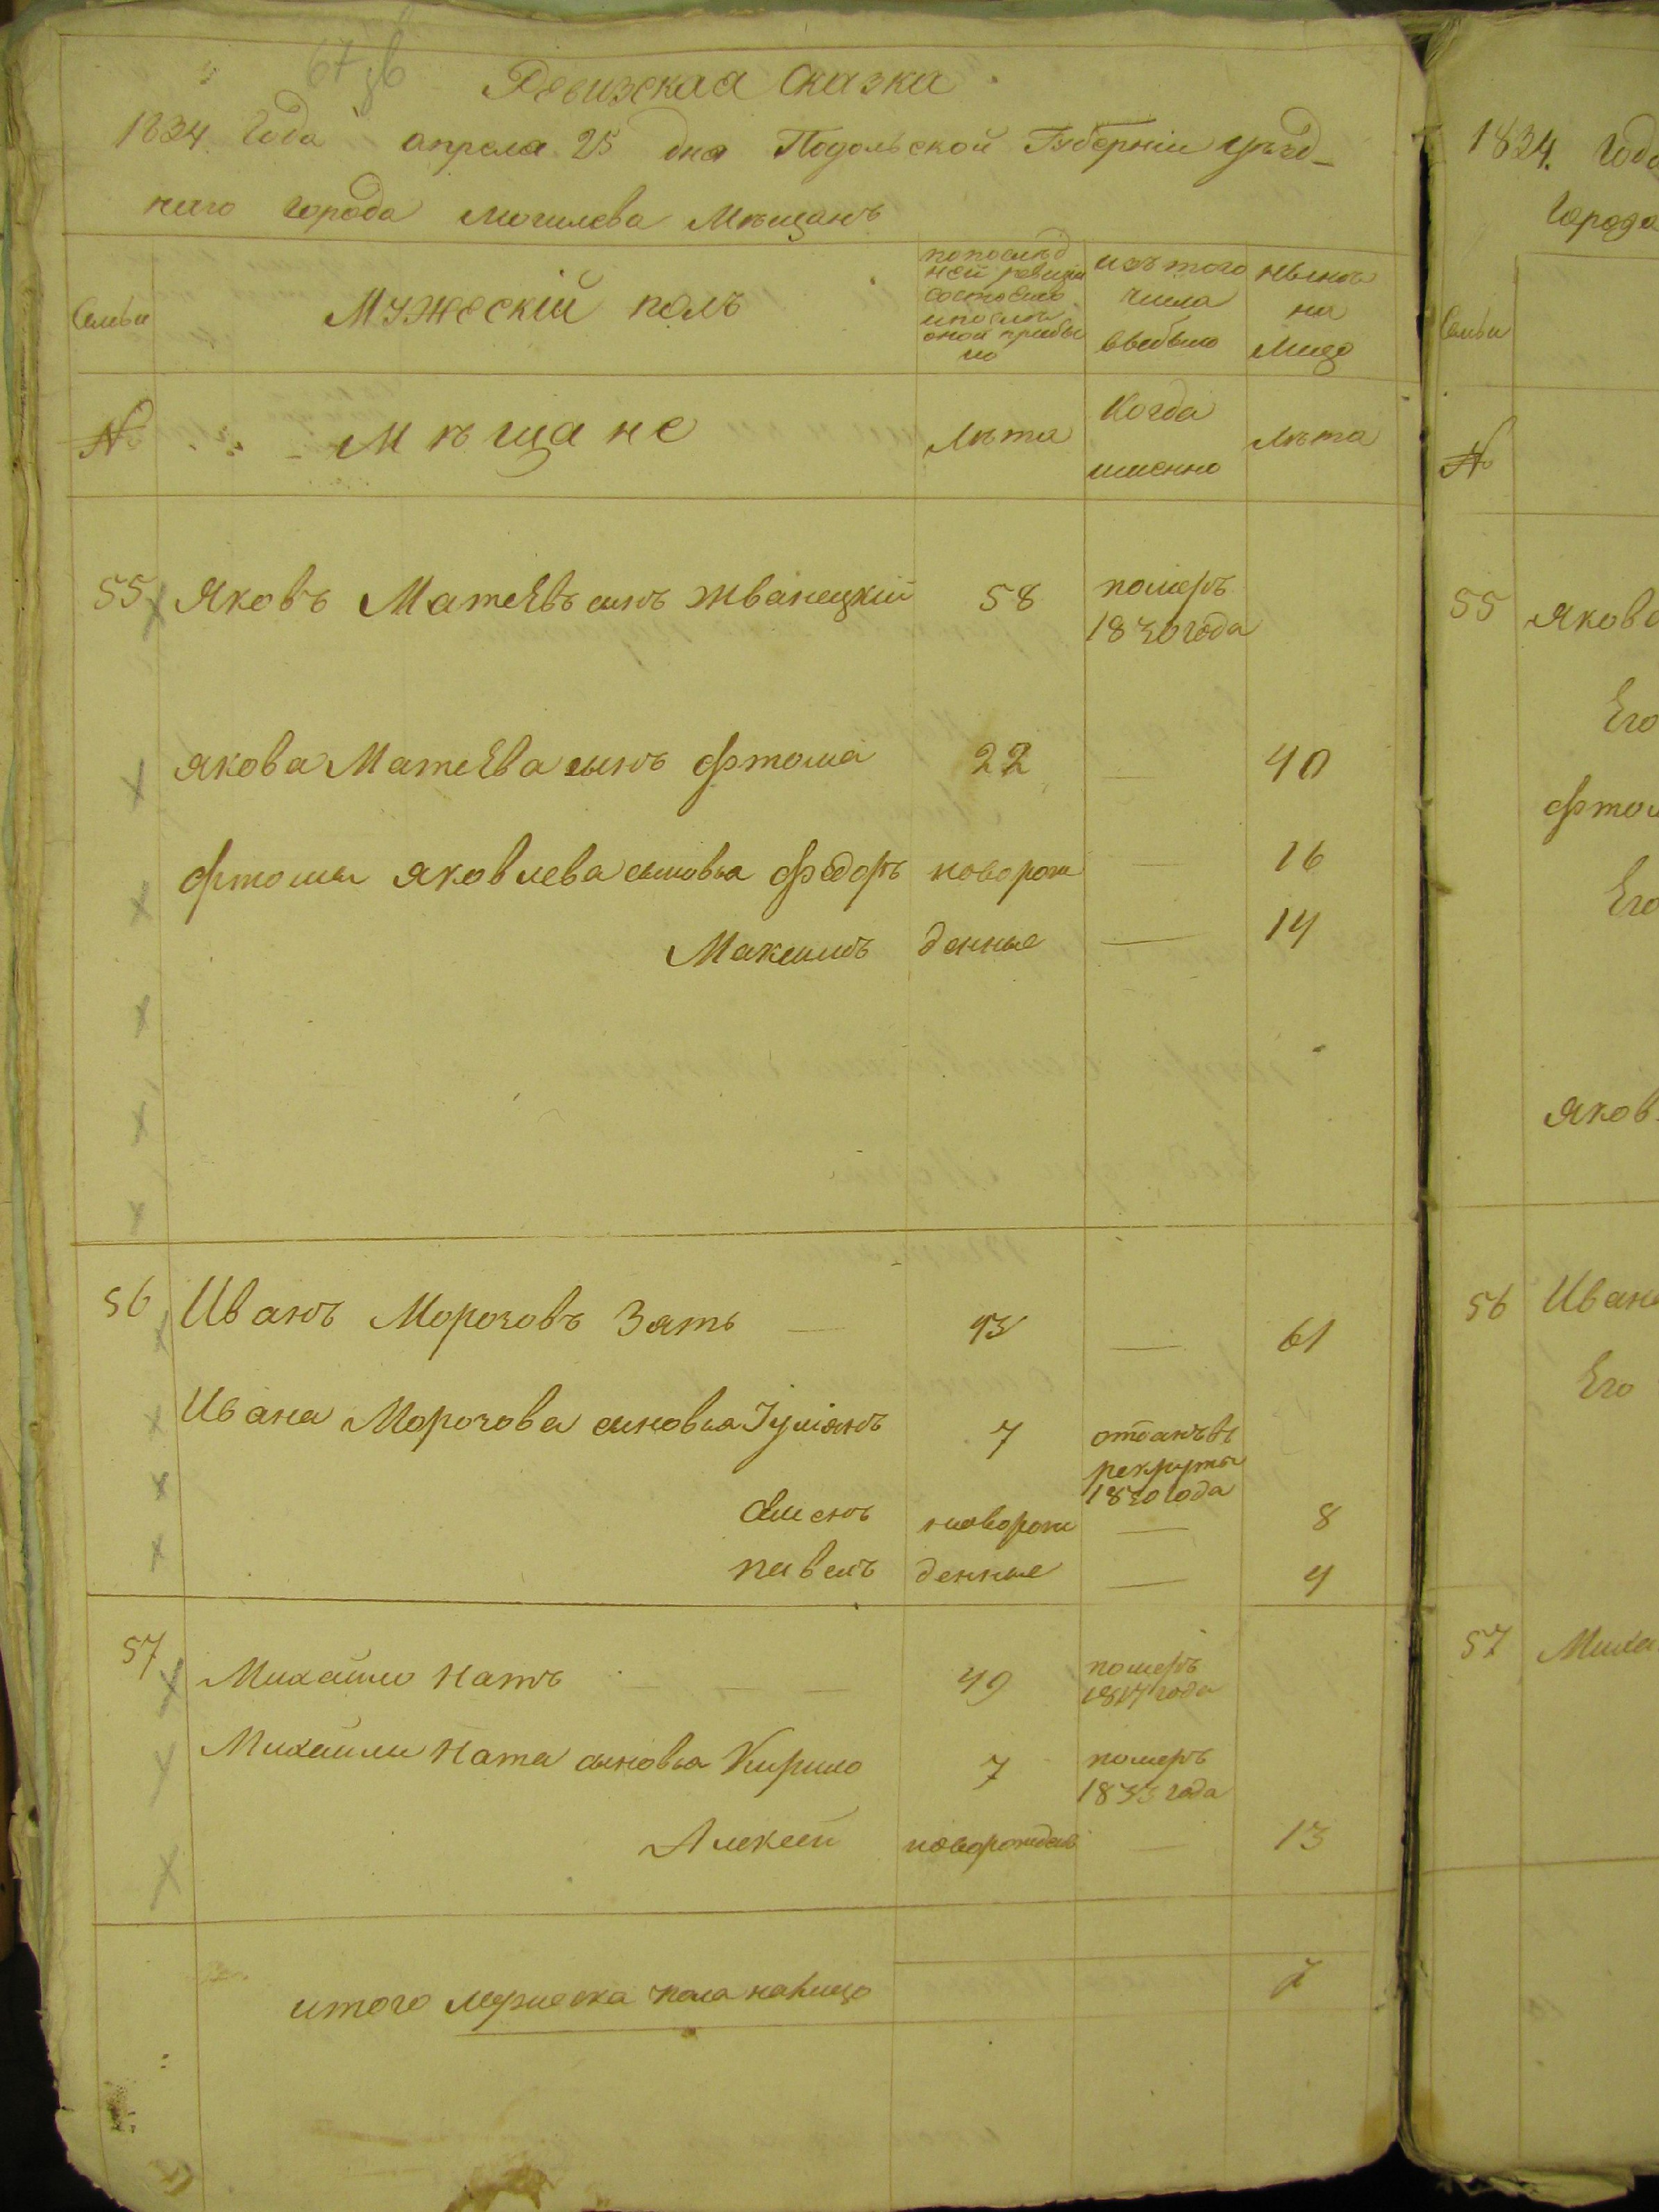 67 зв
Ревизская Сказка
1834 Года апреля 25 дня Подольской Губерніи уѣзд-
наго города Могилева Мѣщанъ
Семьи
Мужескій полъ
попослѣд
ней ревизіи
состояло
ипослѣ
оной прибы
ло
изъ того
числа
выбыло
нынѣ
на
лицо
№
Мѣщане
Лѣта
Когда
именно
Лѣта
55 Яковъ Матеевъ сынъ Жванецкій 58 померъ
1830 года
Якова Матеева сынъ Фтома 22 — 40
Фтомы Яковлева сыновья Федоръ новорож — 16
Максимъ денные — 14
56 Иванъ Морозовъ Зять — 43 — 61
Ивана Морозова сыновья Іуліянъ 7 отданъ въ
рекруты
1830 года
новорож — 8
павелъ денные — 4
57
Михайло Натъ — — — 49 померъ
года
Михайли Ната сыновья Кирило 7 померъ
1833 года
Алексей новорожден — 13
итого мужеска пола налицо 7
1834. Года
Города
Семьи
№
55 Яково
Его
Фтом
Его
Яков
56 Ивана
Его
57 Миха